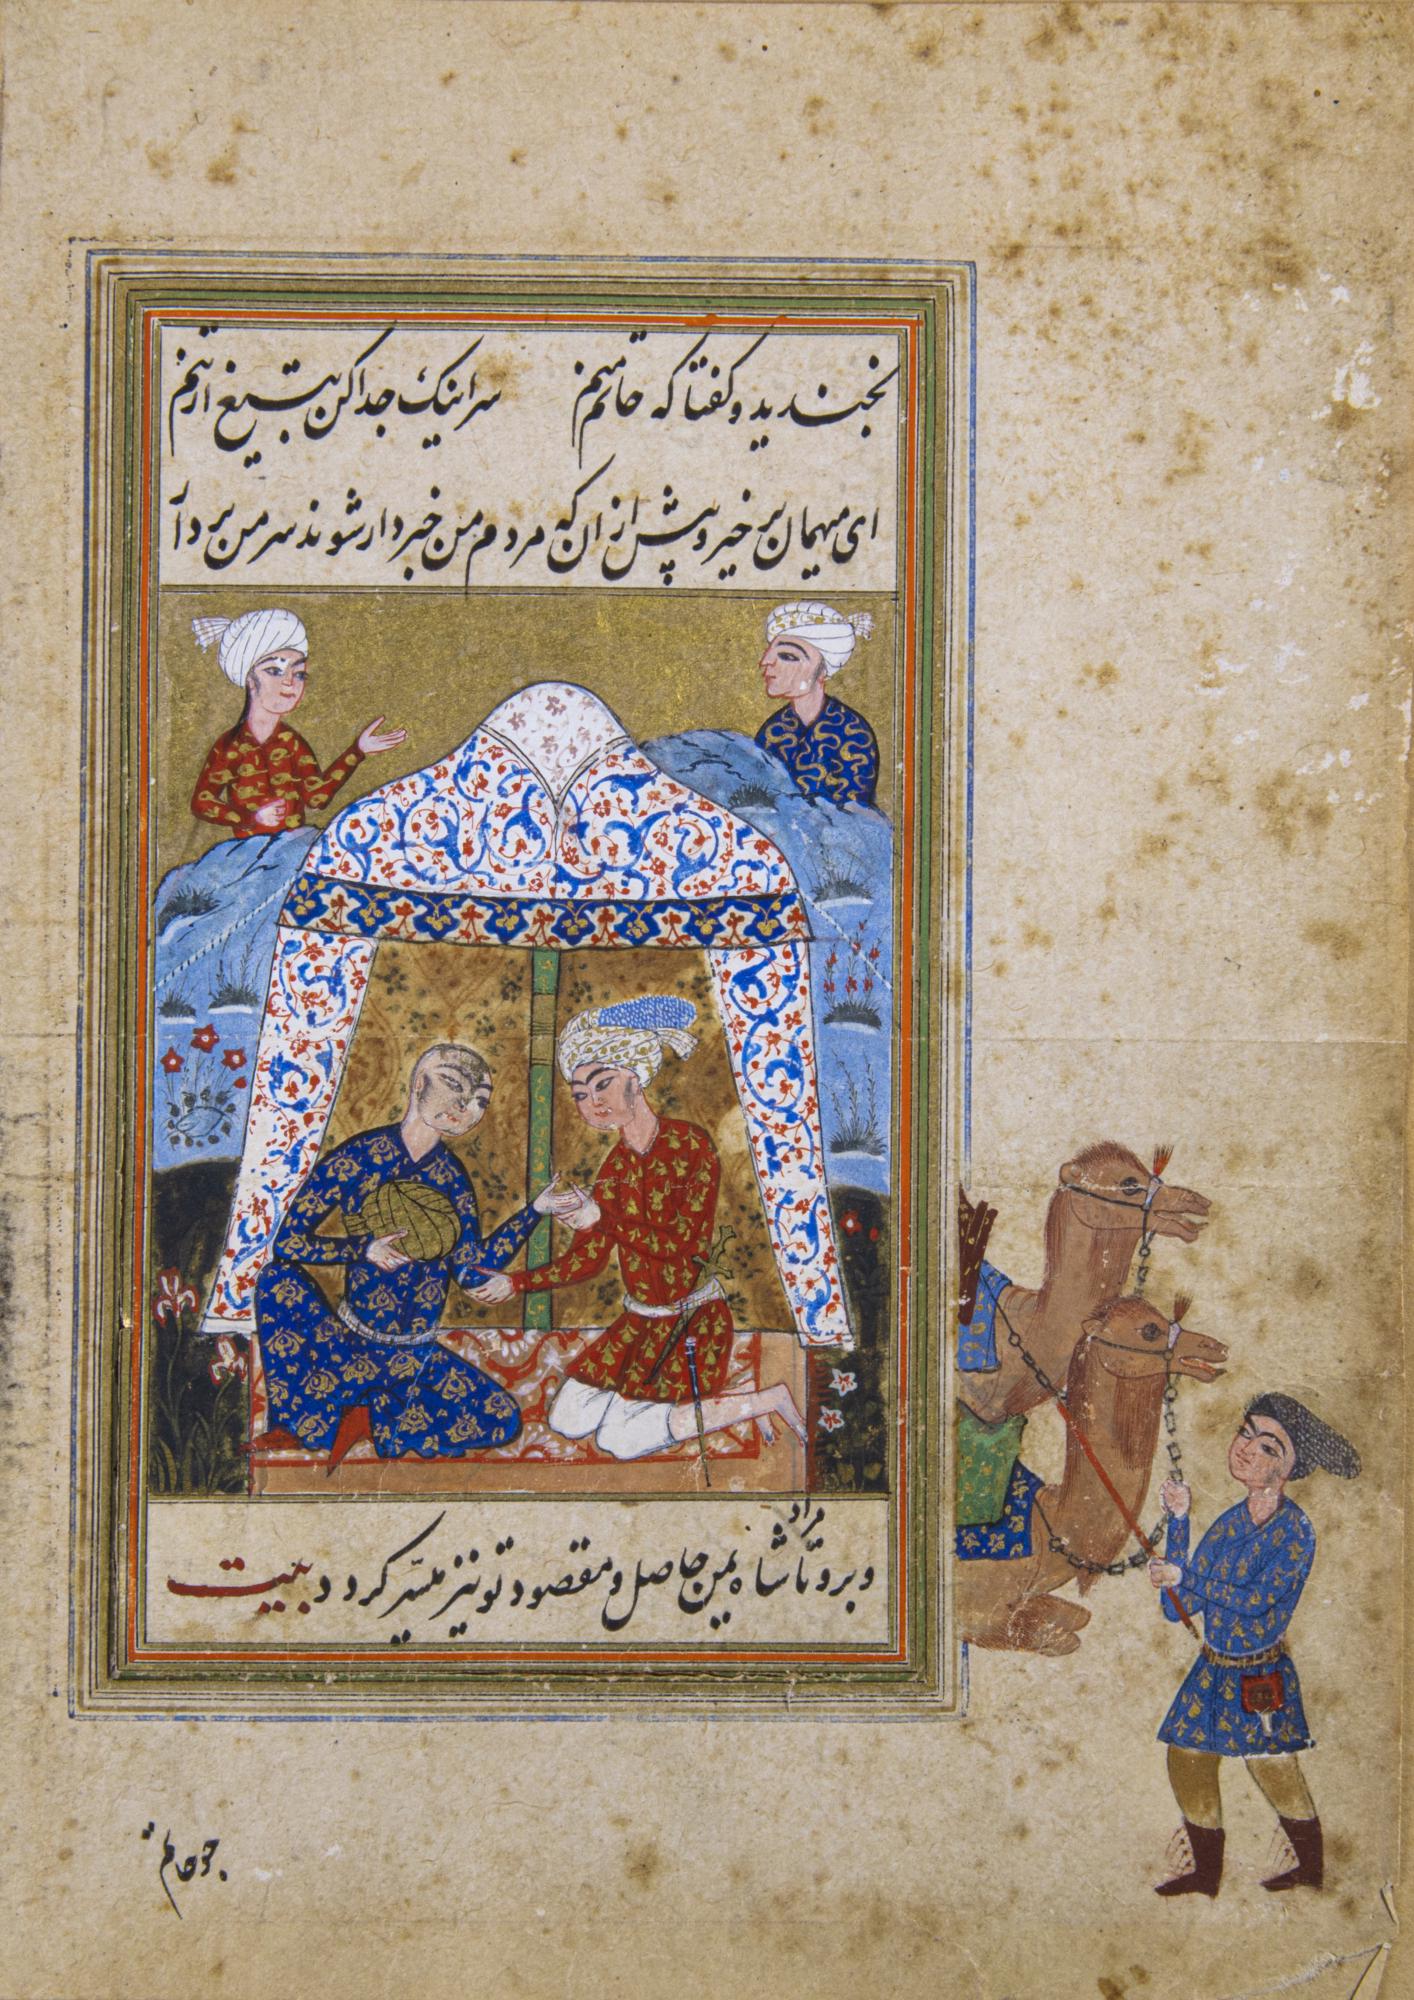 بخندید و کفتا که حاتم منم سر اینک جدا کن بتیغ از تنم
ای میهمان برخیز و پیش از ان که مردم من خبردار شوند سر من بردار
و برو تا مراد شاه یمن حاصل و مقصود تو نیز میسّر کردد بیت
چو حاتم